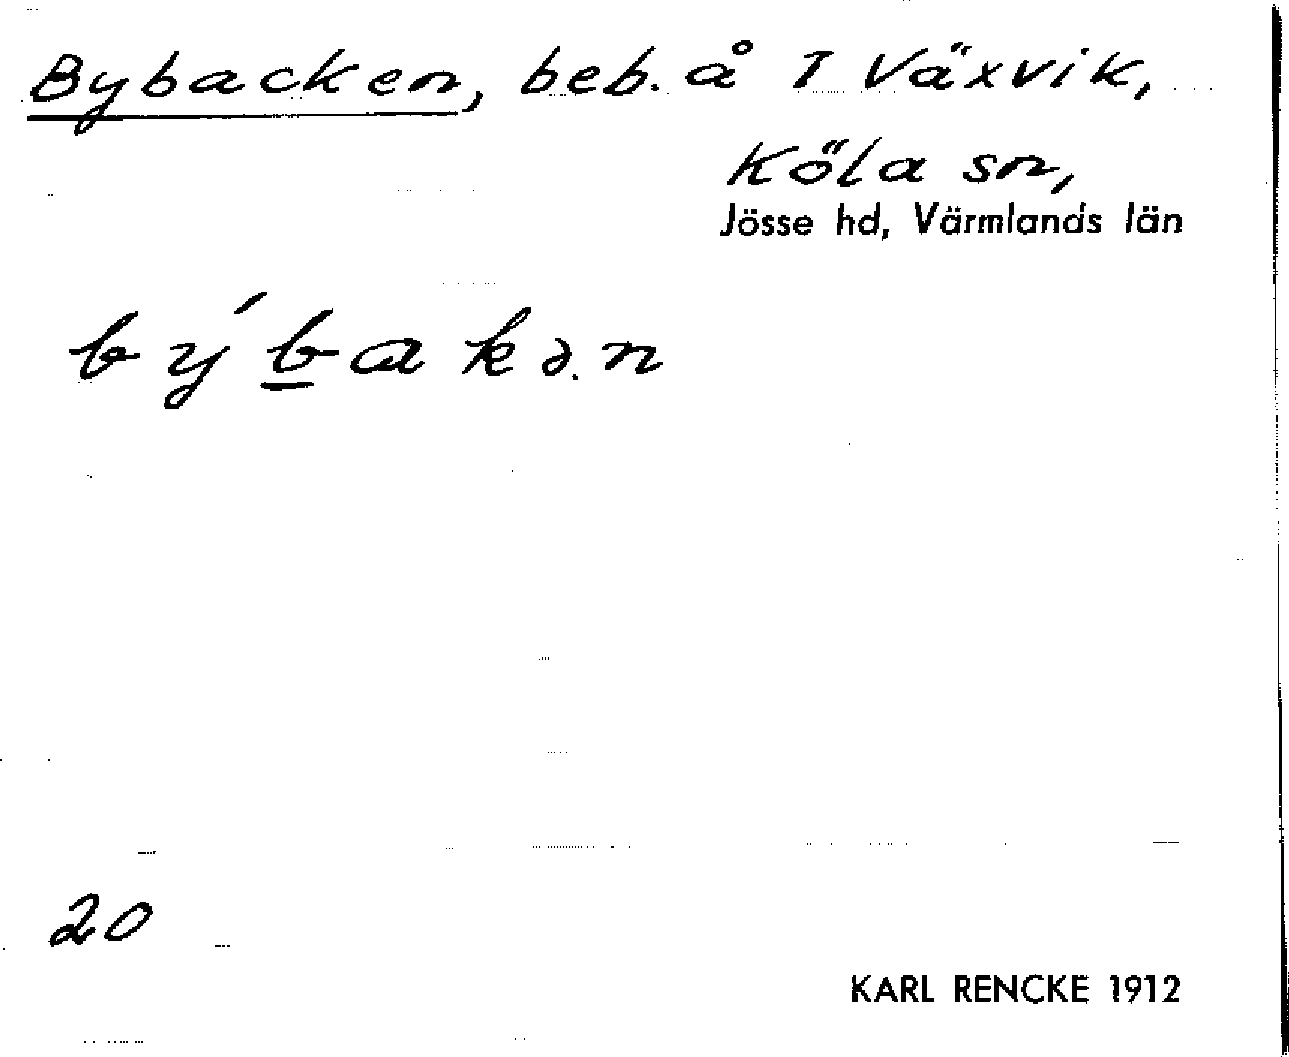 Bybacken, beb. å T Växvik,
Köla sn,
Jössse hd, Värmlands län
býb̲akə.n
20
KARL RENCKE 1912